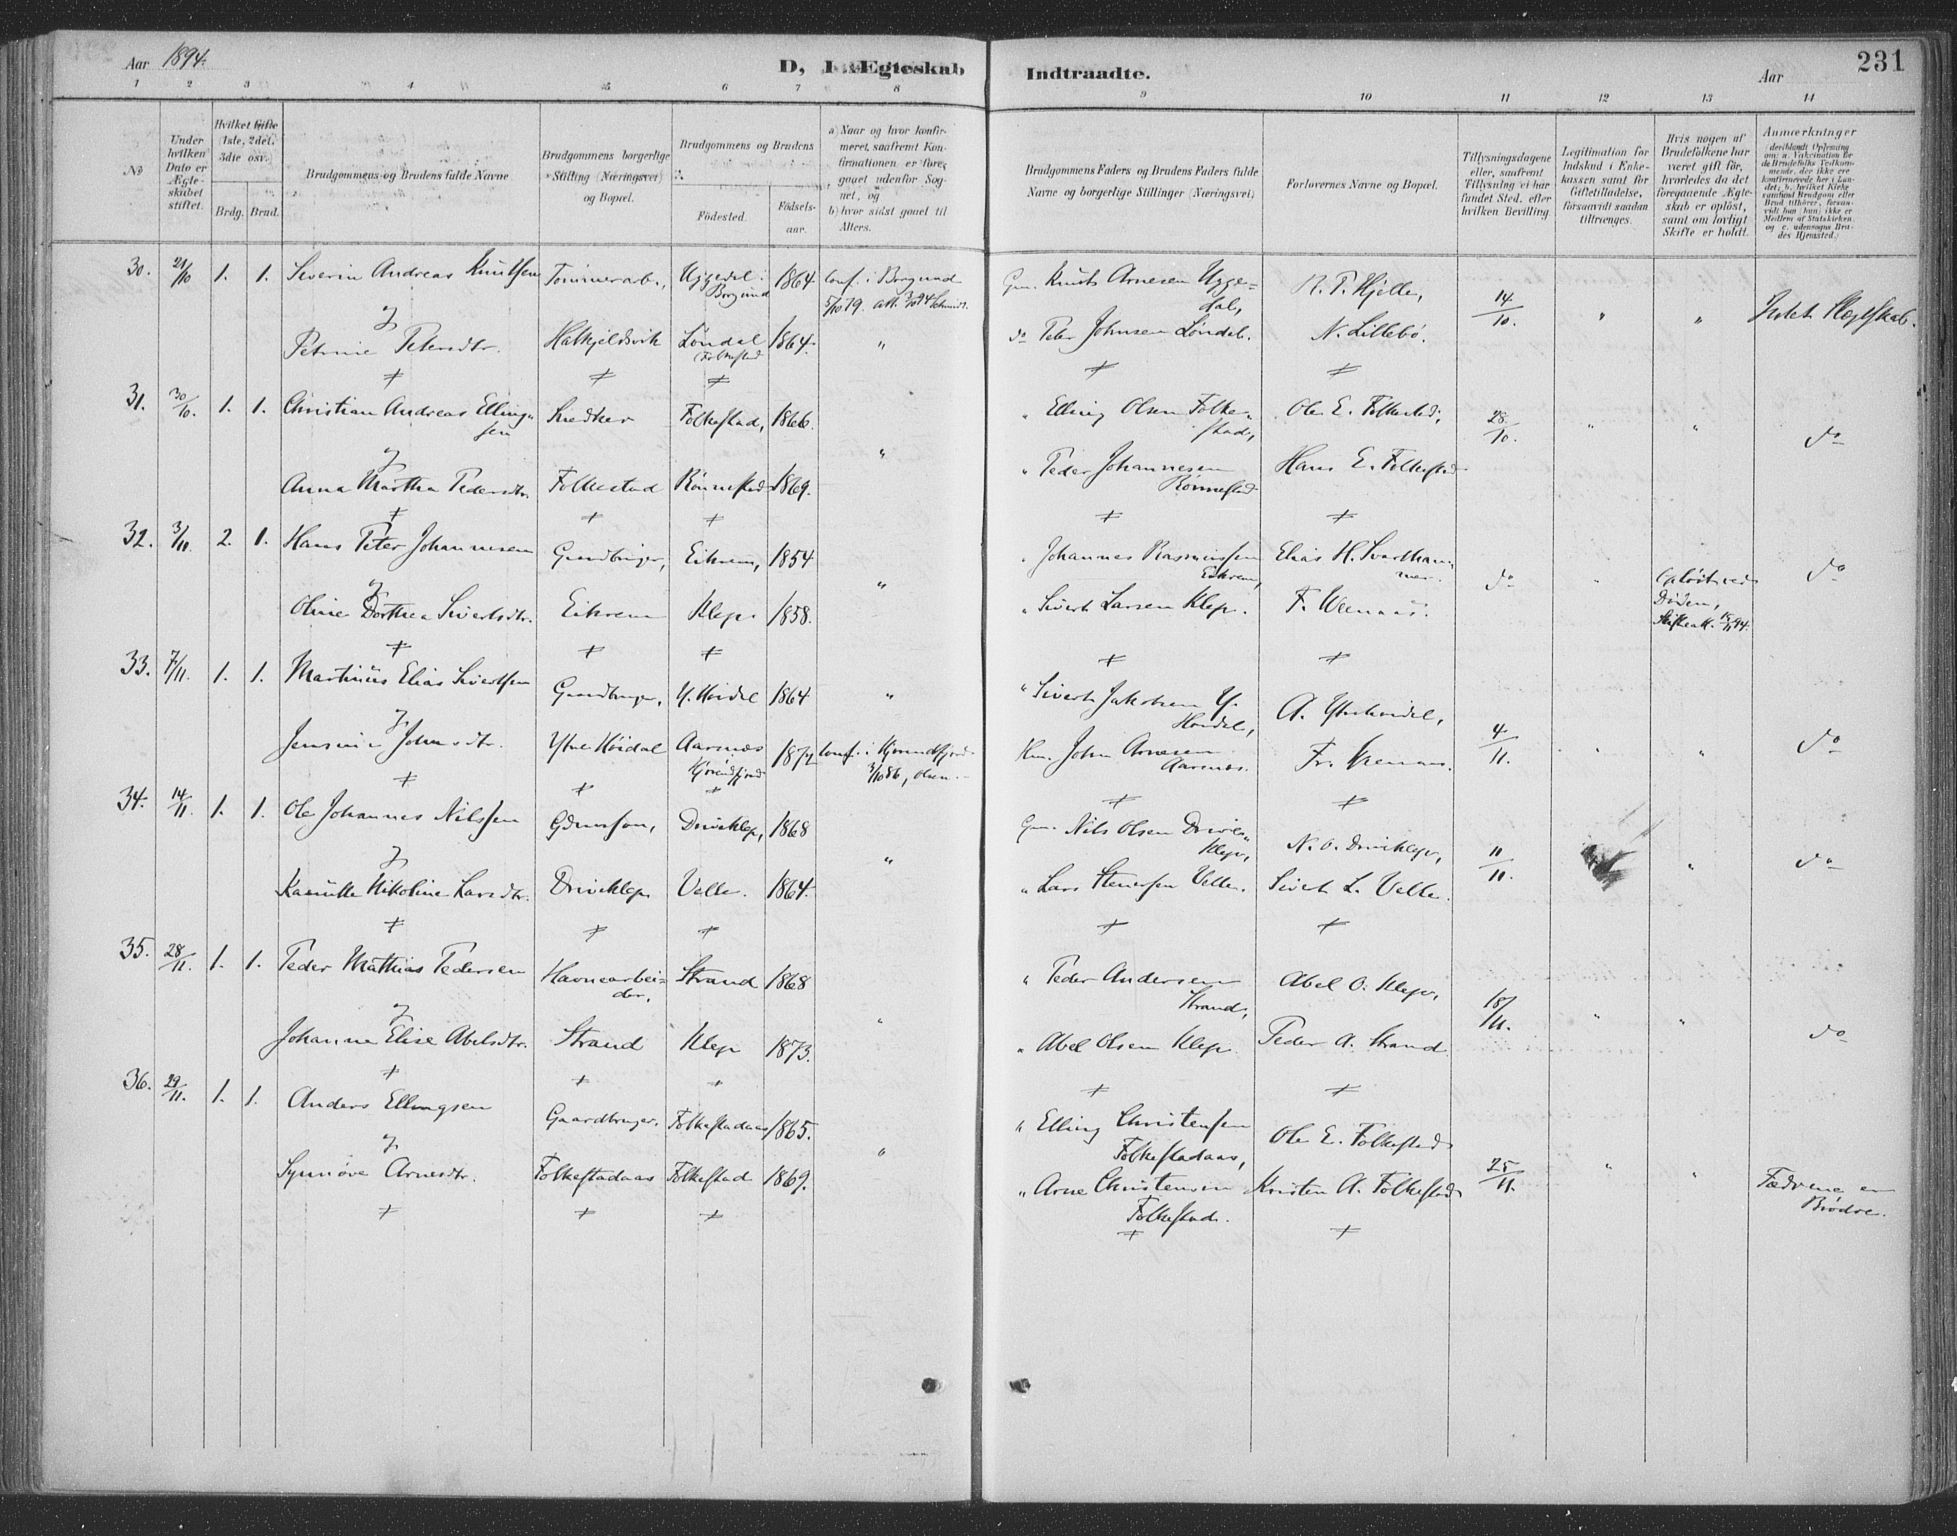 Aar 1894.
D, I Ægteskab
Indtraadte.
Aar
231
1 2 3 4 5 6 7 8 9 10 11 12 13 14
No
Under hvilken Dato er Ægteskabet stiftet.
Hvilket Gifte (1ste, 2det, 3die osv.)
Brdg. Brud.
Brudgommens og Brudens fulde Navne
Brudgommens borgerlige Stilling (Næringsvei) og Bopæl.
Brudgommens og Brudens
Födested.
Födselsaar.
a) Naar og hvor konfirmeret, saafremt Konfirmationen er foregaaet udenfor Sognet, og
b) hvor sidst gaaet til Alters.
Brudgommens Faders og Brudens Faders fulde Navne og borgerlige Stillinger (Næringsvei)
Forlovernes Navne og Bopæl.
Tillysningsdagene eller, saafremt Tillysning ei har fundet Sted, efter hvilken Bevilling
Legitimation for Indskud i Enkekassen samt for Giftetilladelse, forsaavidt saadan tiltrænges.
Hvis nogen af Brudefolkene har været gift för, hvorledes da det foregaaende Ægteskab er oplöst, samt om lovligt Skifte er holdt.
Anmærkninger
30. 21/10 1. 1. Severin Andreas Knutsen Tømmerarb., Uggedal Borgund 1864 Conf. i Borgund 5/10 79. Gm. Knut Arnesen Uggedal, R. P. Hjelle, 14/10. " " Intet Slegtskab.
& Petrine Petersdtr. Halkjeldsvik Løndal Folkestad 1864. " do Peter Johnsen Løndal. N. Lillebø.
31. 30/10. 1. 1. Christian Andreas Ellingsen Snedker Folkestad, 1866. " " Elling Olsen Folkestad, Ole E. Folkestad, 28/10. " " do
& Anna Martha Pedersdtr. Folkestad Rønnestad 1869. " Peder Johannesen Rønnestad Hans E. Folkestad
32. 3/11. 2. 1. Hans Peter Johannesen Gaardbruger, Eikrem, 1854 " Johannes Rasmussen Eikrem, Elias H. Svarthammer. do " Opløst ved Døden, do
& Oline Dorthea Sivertsdtr. Eikrem Klep. 1858. " Sivert Larsen Klep. F. Weenaas.
33. 7/11. 1. 1. Martinus Elias Sivertsen Gaardbruger, Y. Høidal 1864 " " Sivert Jakobsen Y. Høidal, A. Ytrehøidal, 4/11. " " do
& Jensine Johnsdtr. Ytre Høidal Aarsnes Hjørundfjord 1872 Conf. i Hjørundfjord 3/10 86, Olsen. Hm. John Arnesen Aarsnes. Fr. Weenaas.
34. 14/11. 1. 1. Ole Johannes Nilssen Gdmssøn, Driveklep, 1868 " Gm. Nils Olsen Driveklep, N. O. Driveklep, 11/11. " do
& Nikoline Larsdtr. Driveklep Velle. 1864. " Lars Steneren Velle. Sivert L. Velle.
35. 28/11. 1. 1. Peder Mathias Pedersen Havnearbeider, Strand 1868 " " Peder Andersen Strand, Abel O. Klep, 18/11. " " do
& Johanne Elise Abelsdtr. Strand Klep 1873. " Abel Olsen Klep. Peder A. Strand
36. 29/11. 1. 1. Anders Ellingsen Gaardbruger. Folkestadaas 1865. " " Elling Christensen Folkestadaas, Ole E. Folkestad 25/11. " " Fædrene er Brødre.
& Synnøve Arnesdtr. Folkestadaas Folkestad 1869. " Arne Christensen Folkestad. Kristen A. Folkestad